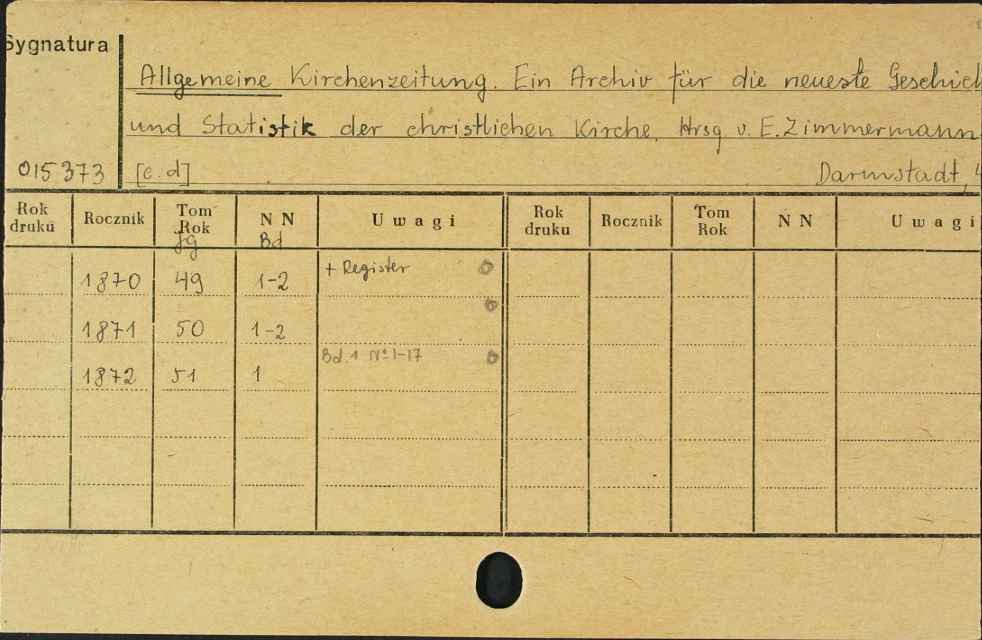 Sygnatura
Allgemeine Kirchenzeitung. Ein Archiv für die neueste Geschich
und Statistik der christlichen Kirche. Hrsg v. E. Zimmermann
015373 [c.d] Darmstadt, 4
Rok druku Rocznik Tom Rok N N Uwagi Rok druku Rocznik Tom Rok N N Uwagi
Jg Bd
1870 49 1-2 + Register
1871 50 1-2
1872 51 1 Bd. 1 Nº 1-17